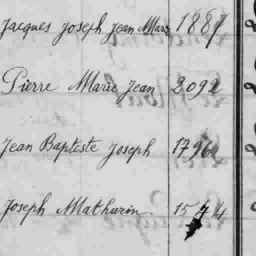 Jacques Joseph Jean Marie 1887
Pierre Marie Jean 2092
Jean Baptiste Joseph 1796
Joseph Mathurin 1574